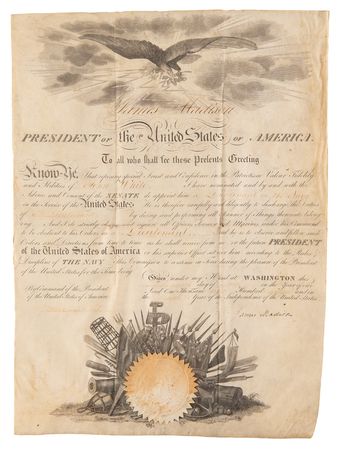 James Madison
PRESIDENT OF the United States OF AMERICA.
To all who shall see these Presents Greeting
Know Ye, That reposing special Trust and Confidence in the Patriotism Valour Fidelity
and Abilities of I have nominated and by and with the
Advice and Consent of the SENATE do appoint him
in the Service of the United States He is therefore carefully and diligently to discharge the duties
of by doing and performing all manner of things thereunto belong
ing And I do strictly charge and require all Officers Seamen & Marines under his Command
to be obedient to his Orders as Lieutenant And he is to observe and follow such
Orders and Directions from time to time as he shall receive from me or the future PRESIDENT
of the United States of America or his superior Officer set over him according to the Rules &
Discipline of THE NAVY This Commission to continue in force during the pleasure of the President
of the United States for the time being
Given under my Hand at WASHINGTON this
day of in the Year of our
By Command of the President
of the United States of America
Lord One Thousand Hundred and in
the Year of the Independence of the United States
James Madison